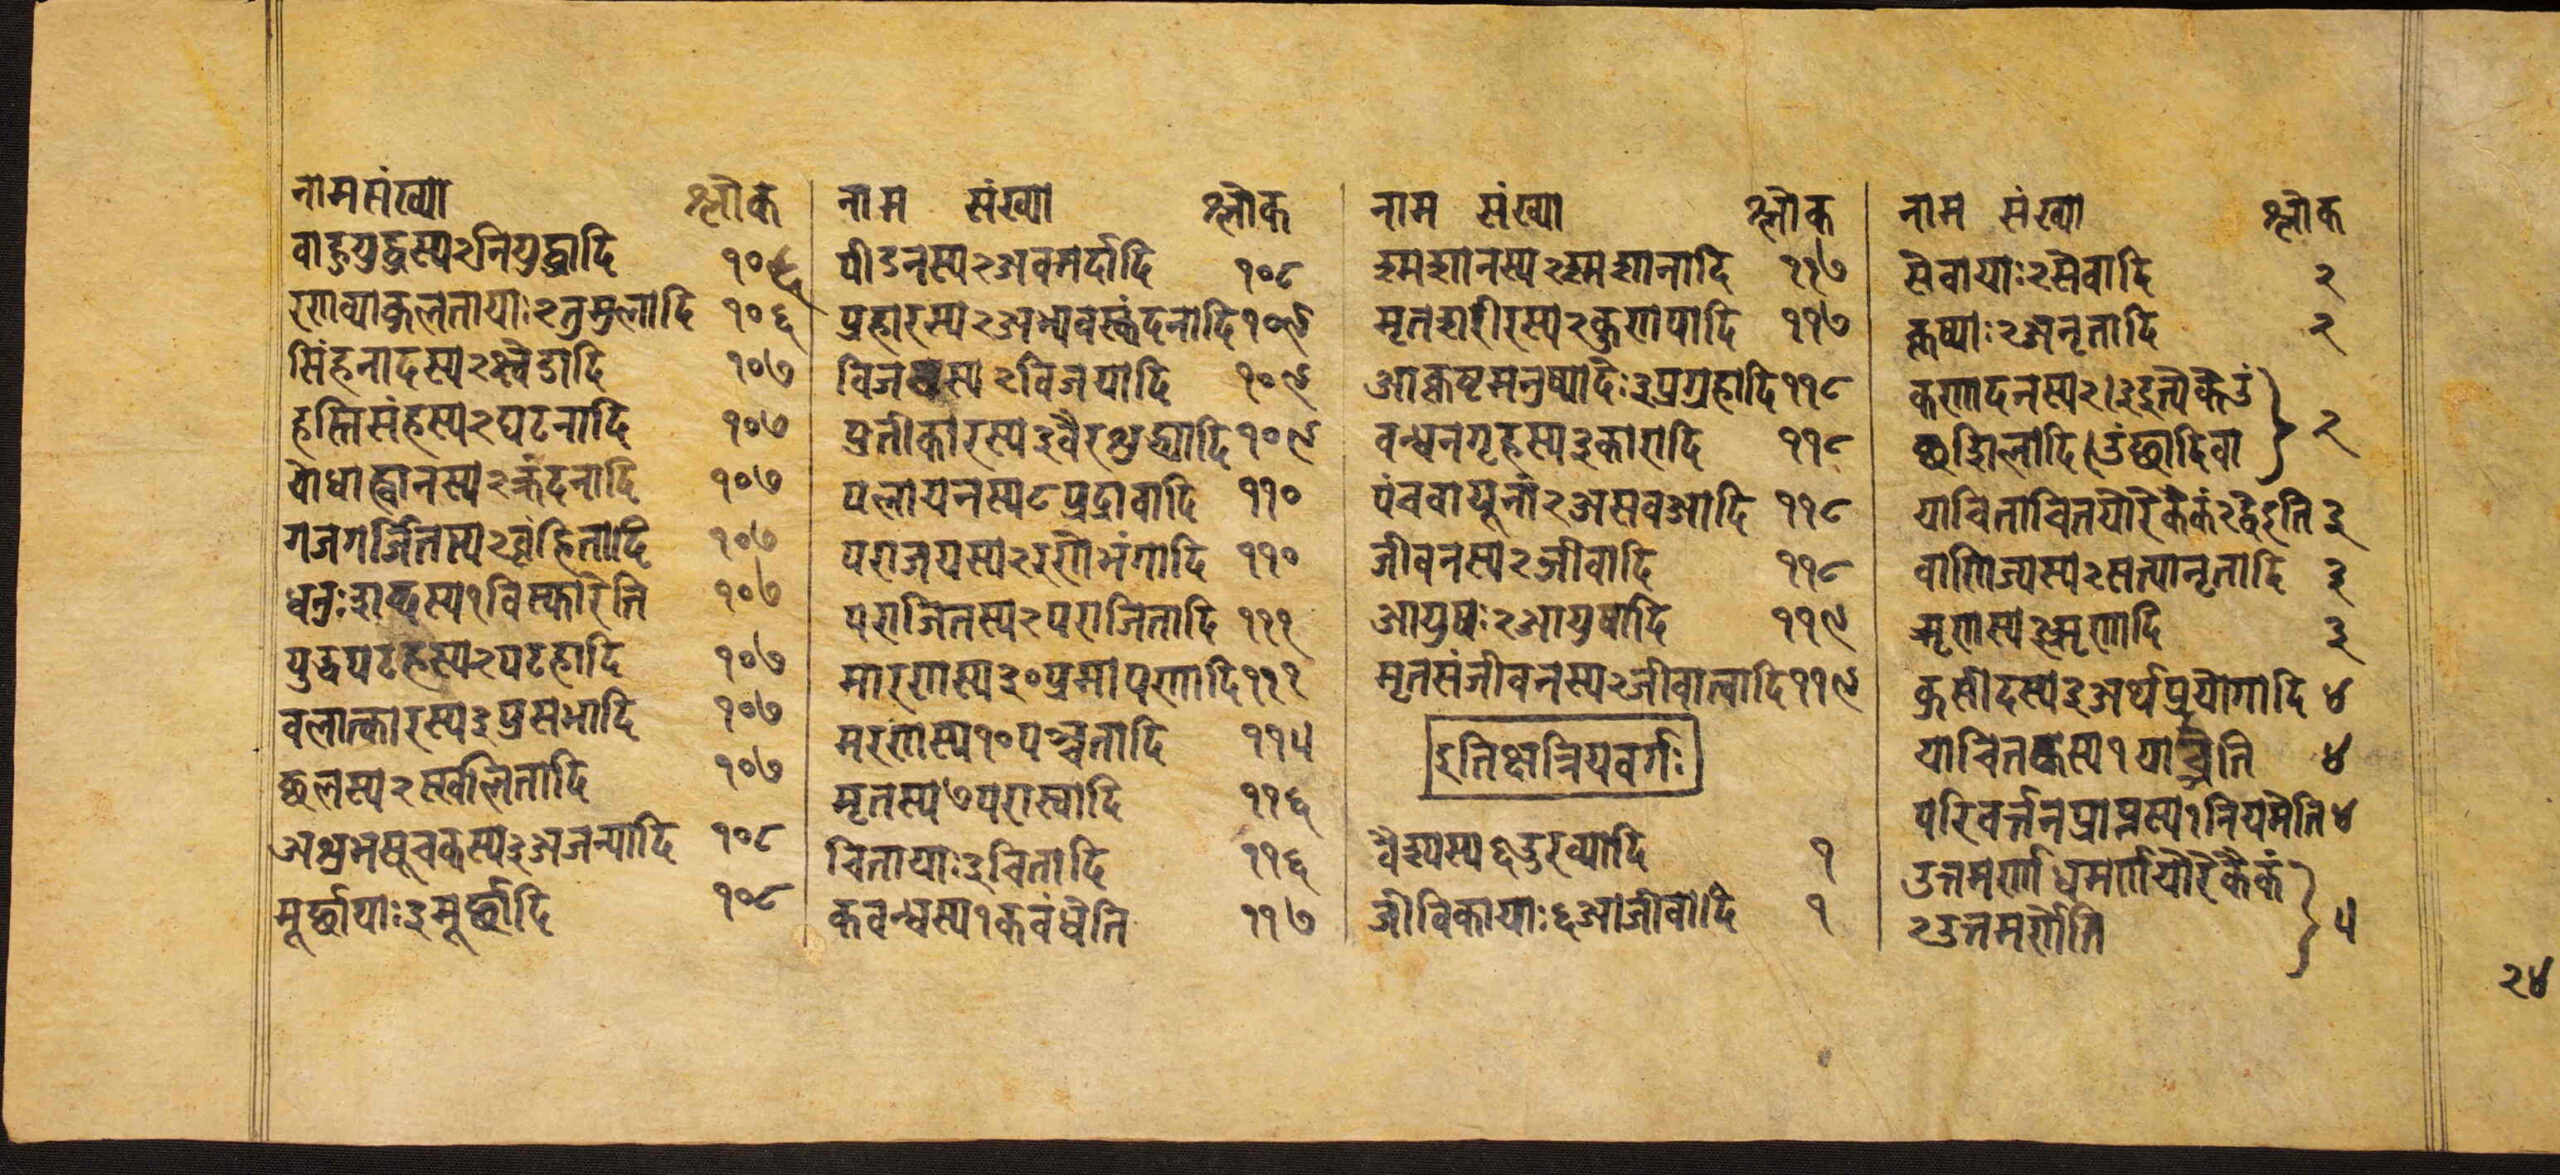 नाम संख्या श्लोक
वाहुयुद्धस्य २ नियुद्धादि १०६
रणव्याकुलतायाः २ तुमुलादि १०६
सिंहनादस्य २ क्ष्वेडादि १०७
हस्तिसंहस्य २ घटनादि १०७
योधाह्वानस्य २ क्रंदनादि १०७
गजगर्जितस्य २ बृंहितादि १०७
धनुःशब्दस्य १ विस्फारेति १०७
युद्धपटहस्य २ पटहादि १०७
वलात्कारस्य ३ प्रसभादि १०७
छलस्य २ स्खलितादि १०७
अशुभसूचकस्य ३ अजन्यादि १०८
मूर्छायाः ३ मूर्छादि १०८
नाम संख्या श्लोक
पीडनस्य २ अवमर्दादि १०८
प्रहारस्य २ अभ्यवस्कंदनादि १०९
विजयस्य २ विजयादि १०९
प्रतीकारस्य ३ वैरशुद्ध्यादि १०९
पलायनस्य ८ प्रद्रावादि ११०
पराजयस्य २ रणेभंगादि ११०
पराजितस्य २ पराजितादि १११
मारणस्य ३० प्रमापणादि १११
मरणस्य १० पञ्चतादि ११५
मृतस्य ७ परास्वादि ११६
चितायाः ३ चितादि ११६
कवन्धस्य १ कवंधेति ११७
नाम संख्या श्लोक
श्मशानस्य २ श्मशानादि ११७
मृतशरीरस्य २ कुणपादि ११७
आकृष्टमनुष्यादेः ३ प्रग्रहादि ११८
वन्धनगृहस्य ३ कारादि ११८
पंचवायूनां २ असवआदि ११८
जीवनस्य २ जीवादि ११८
आयुषः २ आयुषादि ११९
मृतसंजीवनस्य २ जीवात्वादि ११९
इतिक्षत्रियवर्गः
वैश्यस्य ६ उरव्यादि १
जीविकायाः ६ आजीवादि १
नाम संख्या श्लोक
सेवायाः २ सेवादि २
कृष्याः २ अनृतादि २
कणादनस्य २। ३ इत्येके उं
छशिलादि। उंछादिवा २
याचितायाचितयोरेकैकं २ द्वेइति ३
वाणिज्यस्य २ सत्यानृतादि ३
ऋणस्य ३ ऋणादि ३
कुसीदस्य ३ अर्थप्रयोगादि ४
याचितकस्य १ याच्ञेति ४
परिवर्त्तनप्राप्तस्य १ नियमेति ४
उत्तमर्णाधमर्णयोरेकैकं
२ उत्तमर्णेति ५
२४